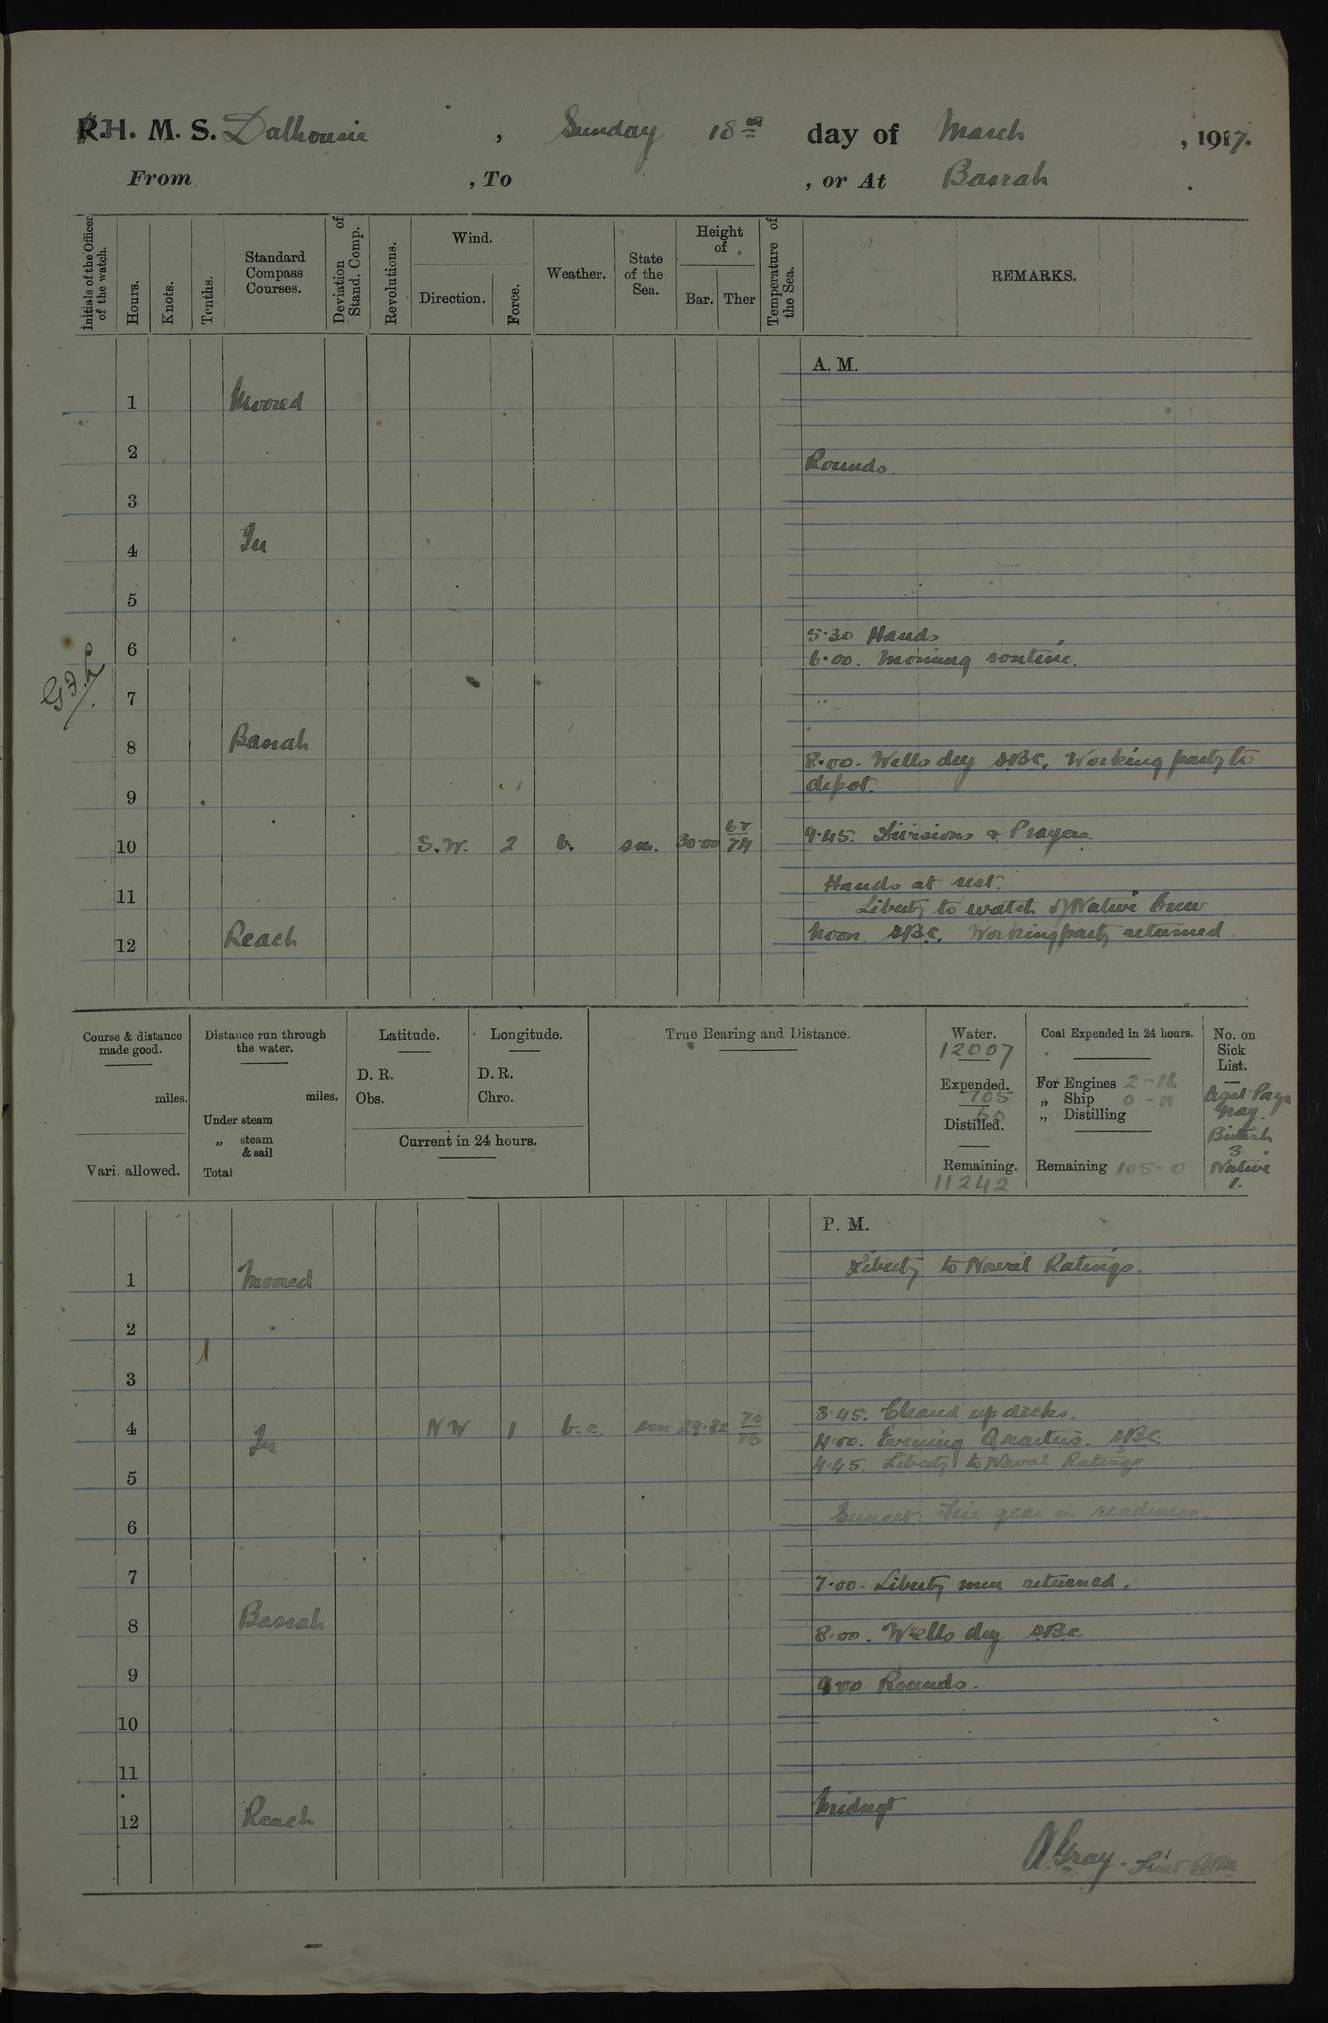 R.H. M. S. Dalhousie, Sunday 18th day of March, 1917.
From , To , or At Basrah.
Initials of the Officer of the watch.
Hours.
Knots.
Tenths.
Standard Compass Courses.
Deviation of Stand. Comp.
Revolutions.
Wind.
Direction.
Force.
Weather.
State of the Sea.
Height of
Bar. Ther
Temperature of the Sea.
REMARKS.
A. M.
1 Moored
2 Rounds
3
4 In
5
5.30 Hands
6
6.00. Morning routine.
7
8 Basrah
8.00. Wells dry SBC. Working party to
depot.
9
10 S.W. 2 b. sm. 30.00 74 9.45. Divisions & Prayers
Hands at rest.
11
Liberty to watch of Native Crew
12 Reach Noon SBC. Working party returned
Course & distance made good.
miles.
Vari. allowed.
Distance run through the water.
miles.
Under steam
„ steam & sail
Total
Latitude.
D. R.
Obs.
Longitude.
D. R.
Chro.
Current in 24 hours.
True Bearing and Distance.
Water.
12007
Expended.
705
Distilled.
Remaining.
11242
Coal Expended in 24 hours.
For Engines
„ Ship
„ Distilling
Remaining 105-0
No. on Sick List.
Gray.
British
3
Native
1.
P. M.
Liberty to Naval Ratings.
1 Moored
2
3
3.45. Cleared up decks.
4 In NW 1 b.c. sm 29.82 70
4.00. Evening Quarters. SBC
4.45. Liberty to Naval Ratings
5
Sunset. Fire gear in readiness.
6
7 7.00. Liberty men returned.
8 Basrah 8.00. Wells dry SBC
9 9.00 Rounds.
10
11
12 Reach Midngt
A. Gray. Lieut Com